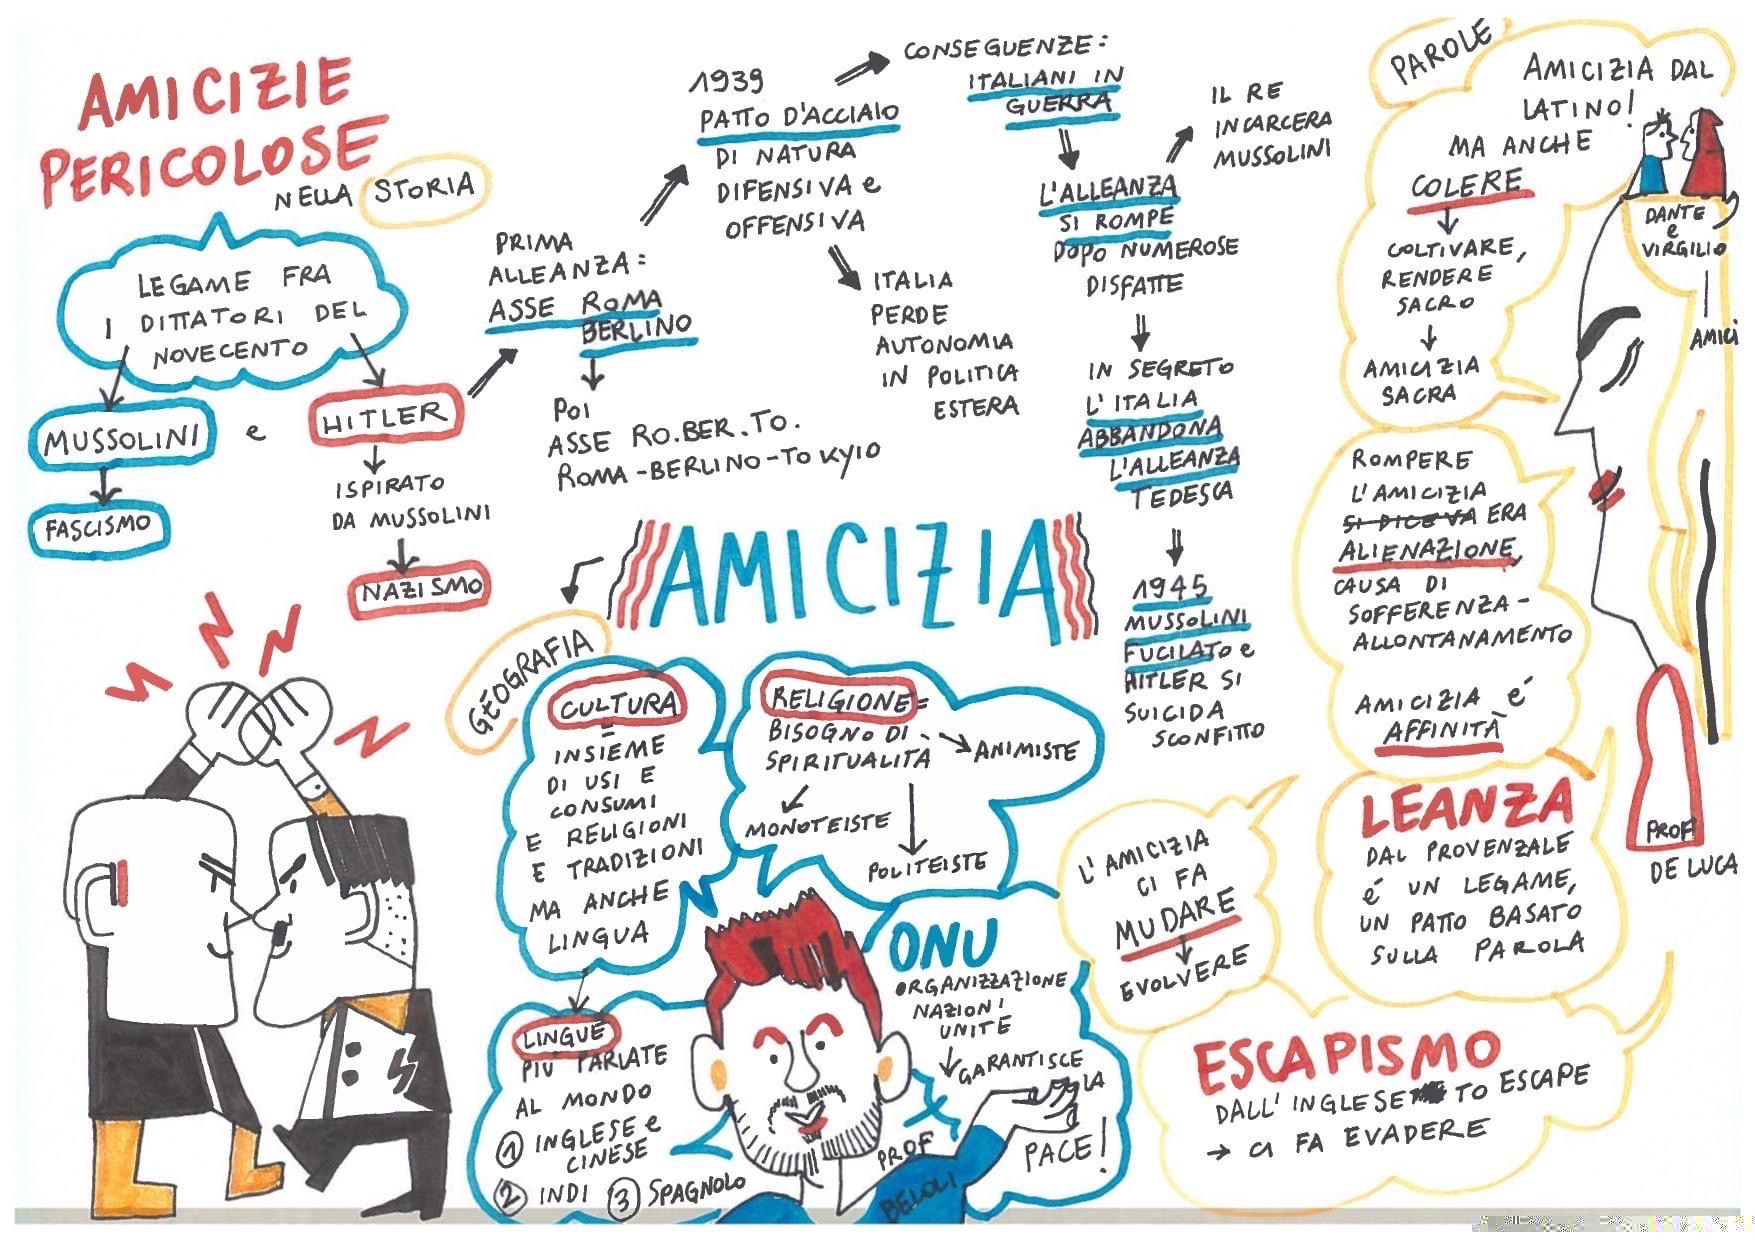 AMICIZIE
PERICOLOSE
NELLA STORIA
LEGAME FRA
I DITTATORI DEL
NOVECENTO
MUSSOLINI e HITLER
FASCISMO
ISPIRATO
DA MUSSOLINI
NAZISMO
PRIMA
ALLEANZA:
ASSE ROMA
BERLINO
POI
ASSE RO.BER.TO.
ROMA-BERLINO-TOKYIO
1939
PATTO D'ACCIAIO
DI NATURA
DIFENSIVA e
OFFENSIVA
ITALIA
PERDE
AUTONOMIA
IN POLITICA
ESTERA
CONSEGUENZE:
ITALIANI IN
GUERRA
L'ALLEANZA
SI ROMPE
DOPO NUMEROSE
DISFATTE
IL RE
INCARCERA
MUSSOLINI
IN SEGRETO
L'ITALIA
ABBANDONA
L'ALLEANZA
TEDESCA
1945
MUSSOLINI
FUCILATO e
HITLER SI
SUICIDA
SCONFITTO
AMICIZIA
GEOGRAFIA
CULTURA
=
INSIEME
DI USI E
CONSUMI
E RELIGIONI
E TRADIZIONI
MA ANCHE
LINGUA
RELIGIONE=
BISOGNO DI
SPIRITUALITÀ
ANIMISTE
MONOTEISTE
POLITEISTE
LINGUE
PIÙ PARLATE
AL MONDO
1 INGLESE e
CINESE
2 INDI 3 SPAGNOLO
ONU
ORGANIZZAZIONE
NAZIONI
UNITE
GARANTISCE
LA
PACE!
PROF
BELOLI
PAROLE
AMICIZIA DAL
LATINO!
MA ANCHE
COLERE
COLTIVARE,
RENDERE
SACRO
AMICIZIA
SACRA
DANTE
e
VIRGILIO
AMICI
ROMPERE
L'AMICIZIA
SI DICEVA ERA
ALIENAZIONE,
CAUSA DI
SOFFERENZA-
ALLONTANAMENTO
AMICIZIA É
AFFINITÀ
LEANZA
DAL PROVENZALE
É UN LEGAME,
UN PATTO BASATO
SULLA PAROLA
PROF
DE LUCA
L'AMICIZIA
CI FA
MUDARE
EVOLVERE
ESCAPISMO
DALL'INGLESE TO ESCAPE
→ CI FA EVADERE